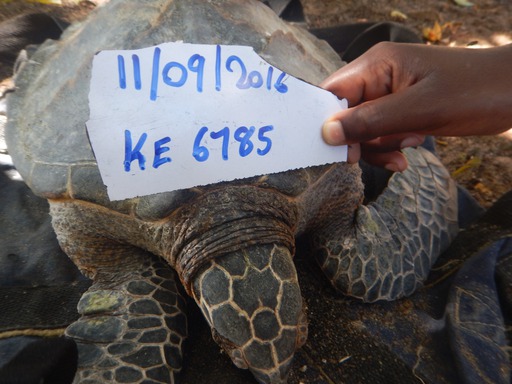 11/09/2016
KE 6785